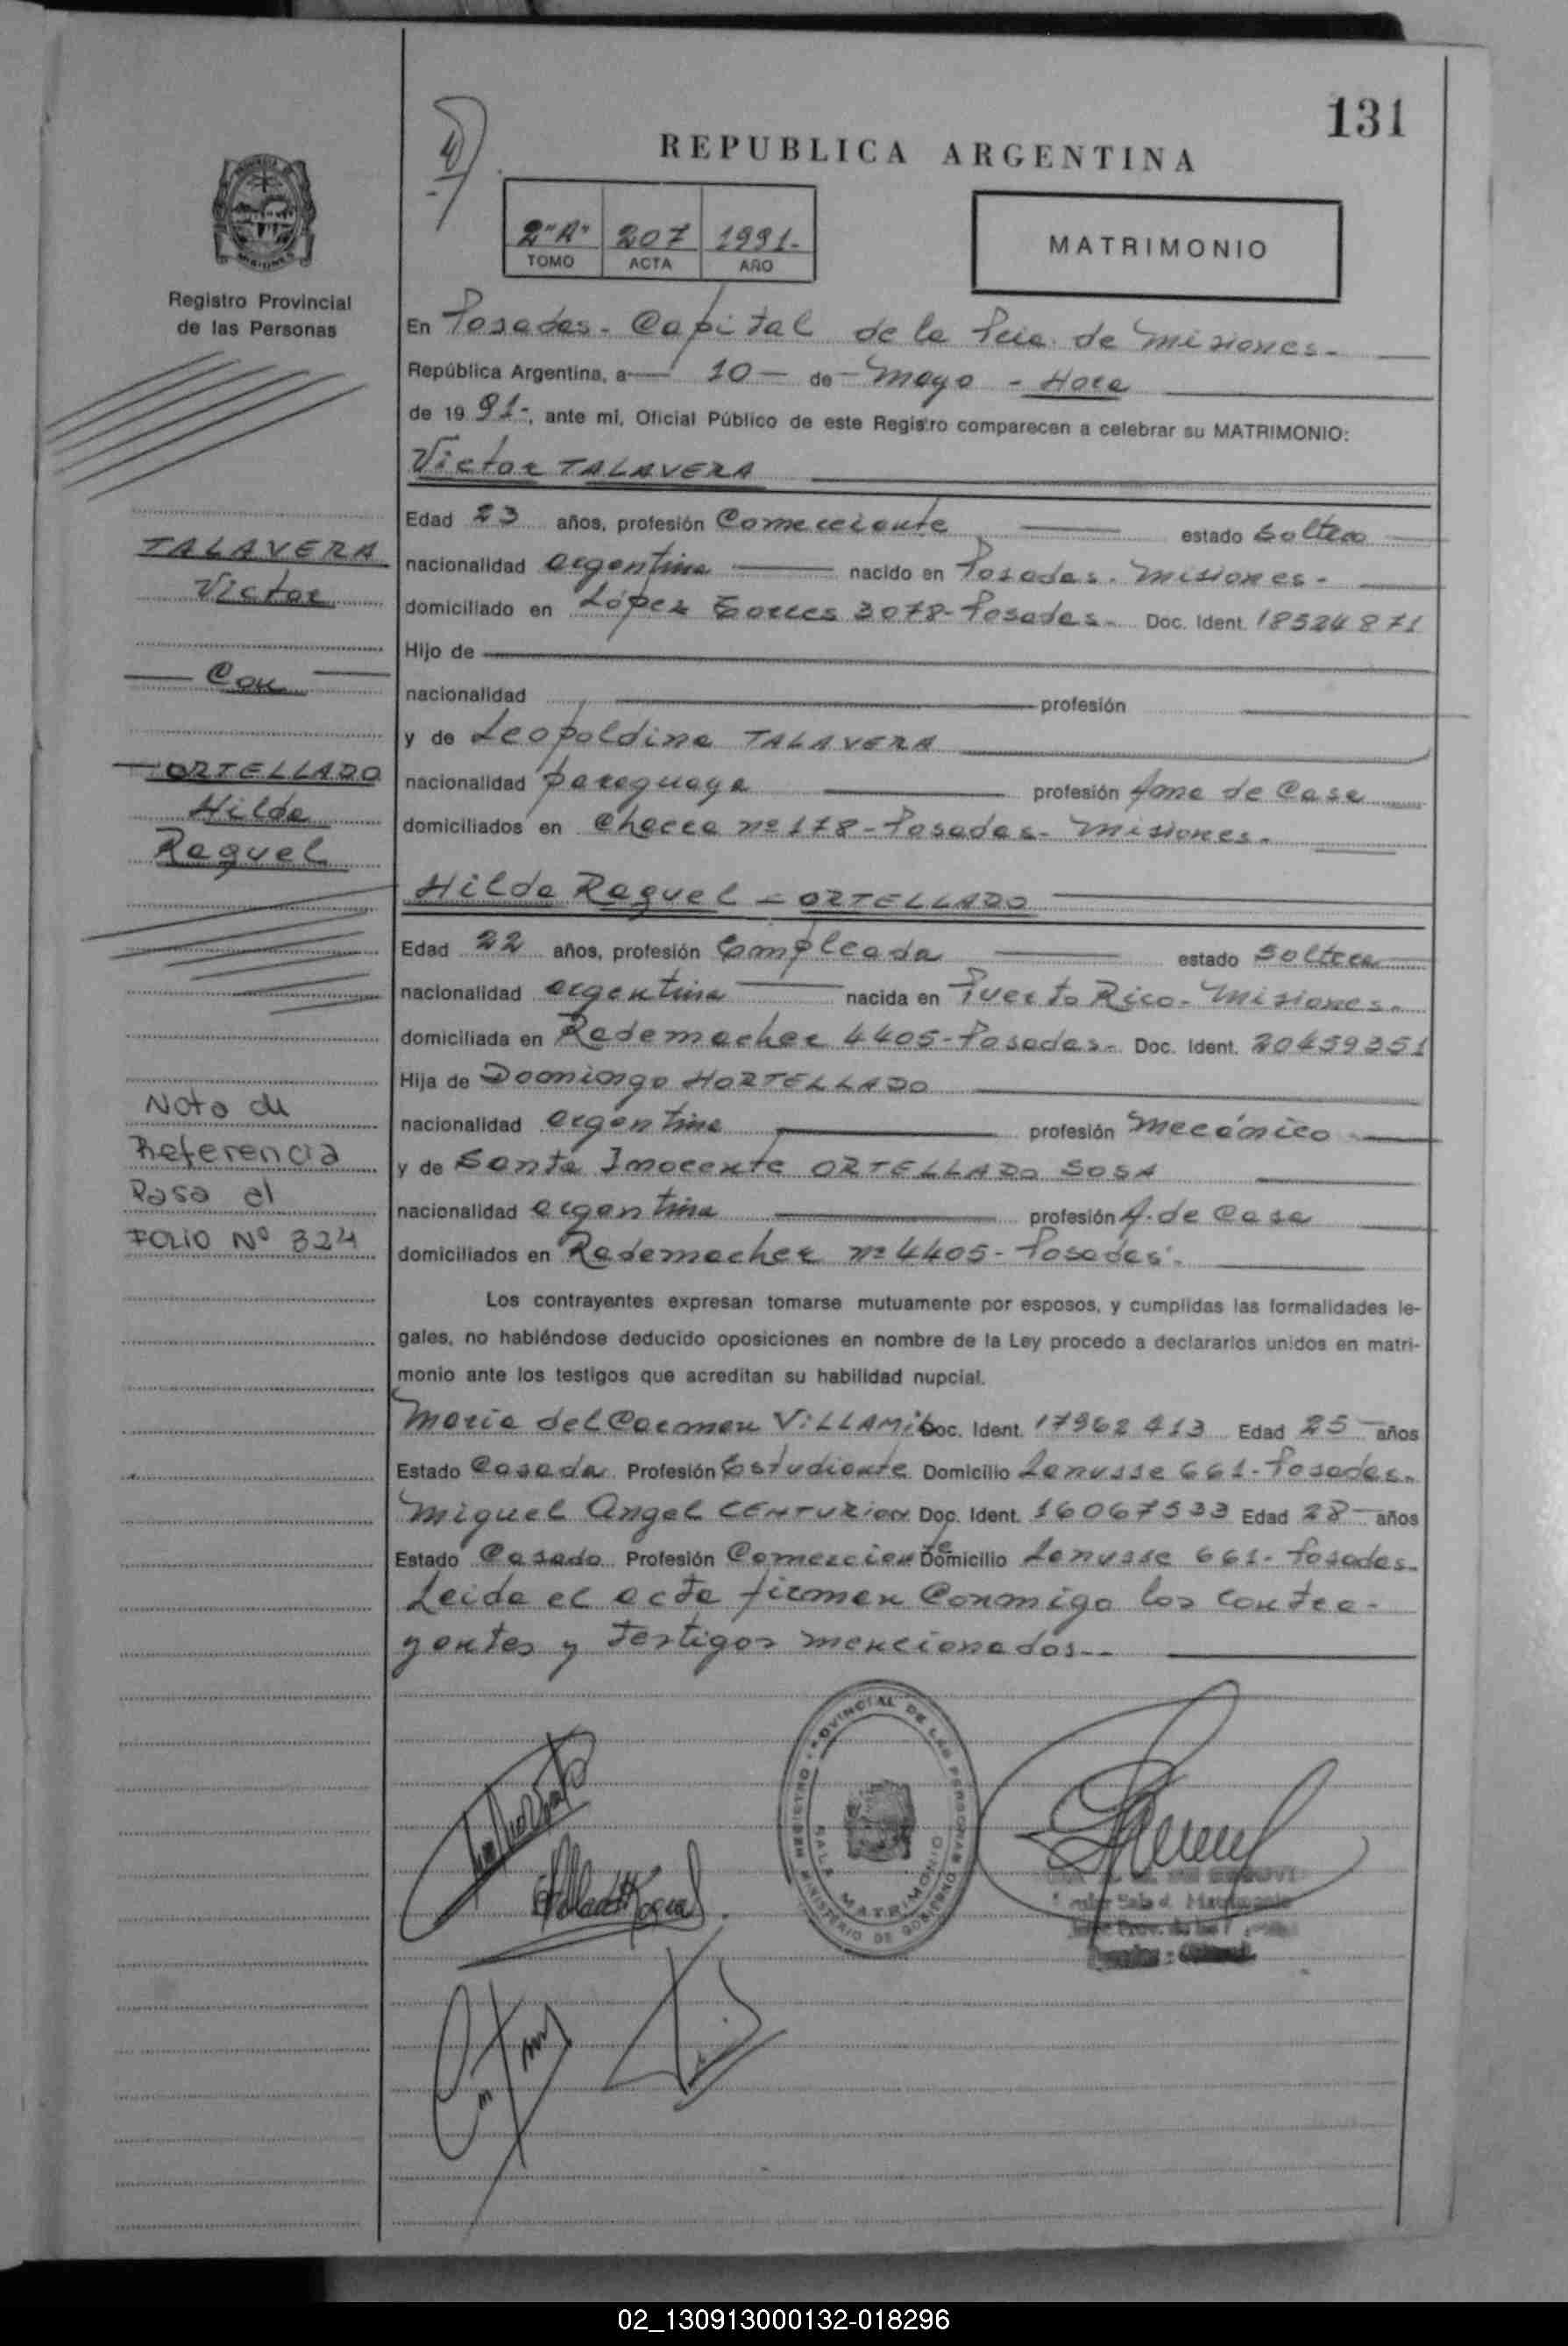 131
REPUBLICA ARGENTINA
2"A" 207 1991-
TOMO ACTA AÑO
MATRIMONIO
Registro Provincial
de las Personas
En Posadas - Capital de la Pcia. de Misiones-
República Argentina, a 10 de Mayo - Hora
de 19 91-, ante mi, Oficial Público de este Registro comparecen a celebrar su MATRIMONIO:
Victor TALAVERA
Edad 23 años, profesión Comerciante estado Soltero
nacionalidad argentina nacido en Posadas. Misiones-
domiciliado en López Torres 3078-Posadas- Doc. Ident. 18524871
Hijo de
nacionalidad profesión
y de Leopoldina TALAVERA
nacionalidad paraguaya profesión Ama de Casa
domiciliados en Chacra nº 178-Posadas- Misiones-
Hilda Raquel - ORTELLADO
Edad 22 años, profesión Empleada estado Soltera
nacionalidad argentina nacida en Puerto Rico- Misiones-
domiciliada en Rademacher 4405-Posadas- Doc. Ident. 20459351
Hija de Domingo HORTELLADO
nacionalidad argentina profesión Mecánico
y de Santa Inocente ORTELLADO SOSA
nacionalidad argentina profesión A. de Casa
domiciliados en Rademacher nº 4405- Posadas-
TALAVERA
Victor
Con
ORTELLADO
Hilda
Raquel
Nota de
Referencia
Pasa al
FOLIO Nº 324
Los contrayentes expresan tomarse mutuamente por esposos, y cumplidas las formalidades le-
gales, no habiéndose deducido oposiciones en nombre de la Ley procedo a declararlos unidos en matri-
monio ante los testigos que acreditan su habilidad nupcial.
Maria del Carmen VILLAMIL Doc. Ident. 17962413 Edad 25 años
Estado Casada Profesión Estudiante Domicilio Lanusse 661-Posadas-
Miguel Angel CENTURION Doc. Ident. 16067533 Edad 28 años
Estado Casado Profesión Comerciante Domicilio Lanusse 661- Posadas-
Leida el acta firman Conmigo los contra-
yentes y testigos mencionados--
REGISTRO PROVINCIAL DE LAS PERSONAS
SALA MATRIMONIO
MINISTERIO DE GOBIERNO
02_130913000132-018296